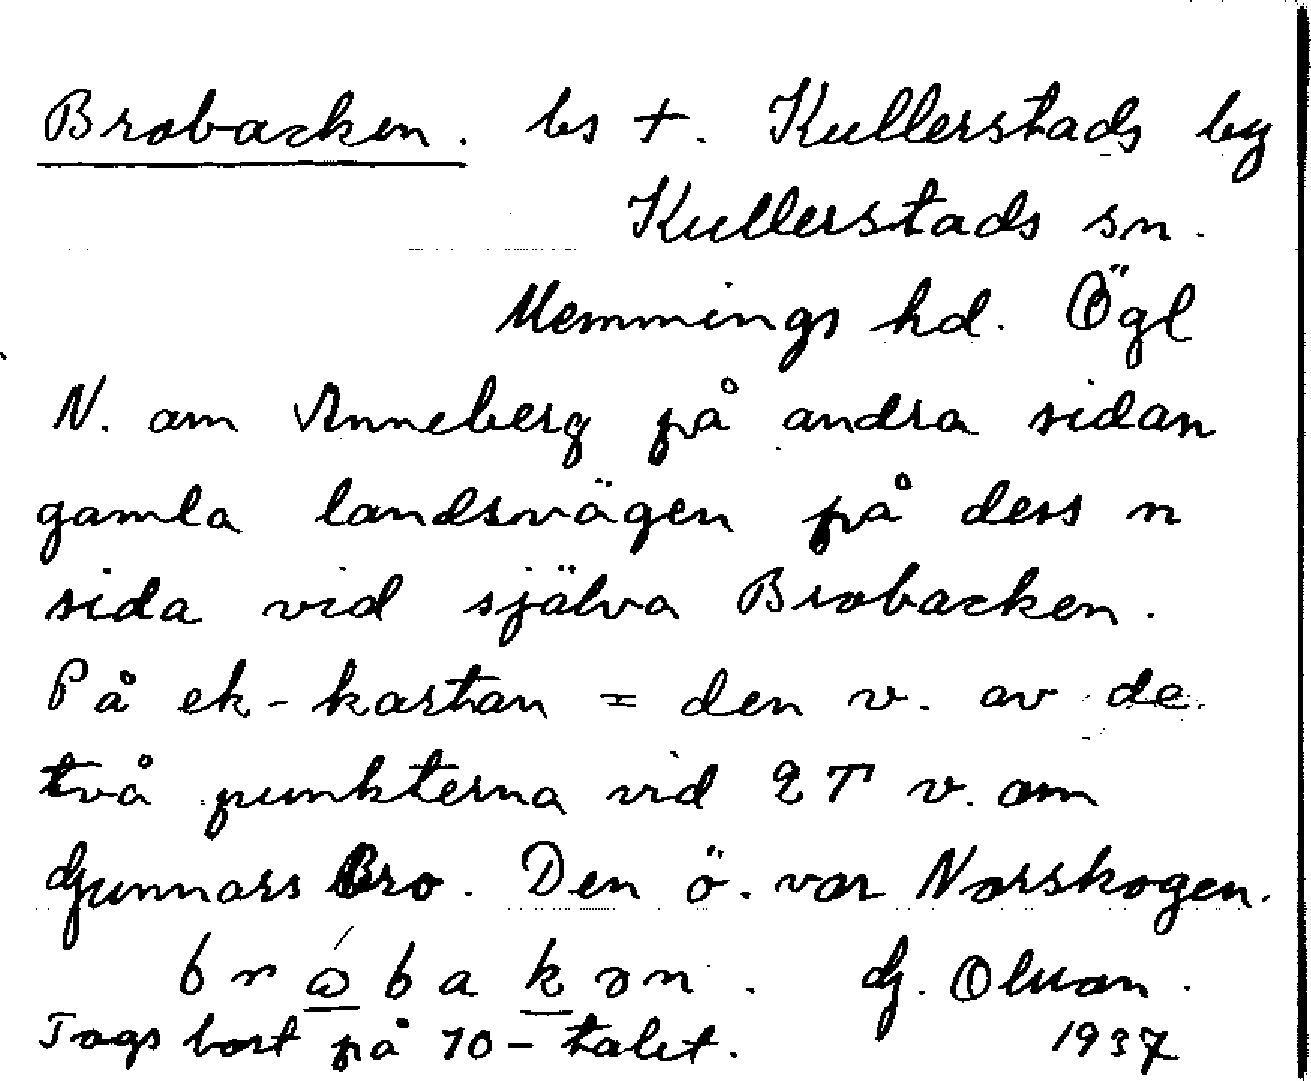 Brobacken. bs +. Kullerstads by
Kullerstads sn.
Memmings hd. Ögl
N. om Anneberg på andra sidan
gamla landsvägen på dess n
sida vid själva Brobacken.
På ek-kartan = den v. av de
två punkterna vid 2 T v. om
Gunnars Bro. Den ö. var Norskogen.
brωbakən. G. Olson.
Togs bort på 70-talet. 1937